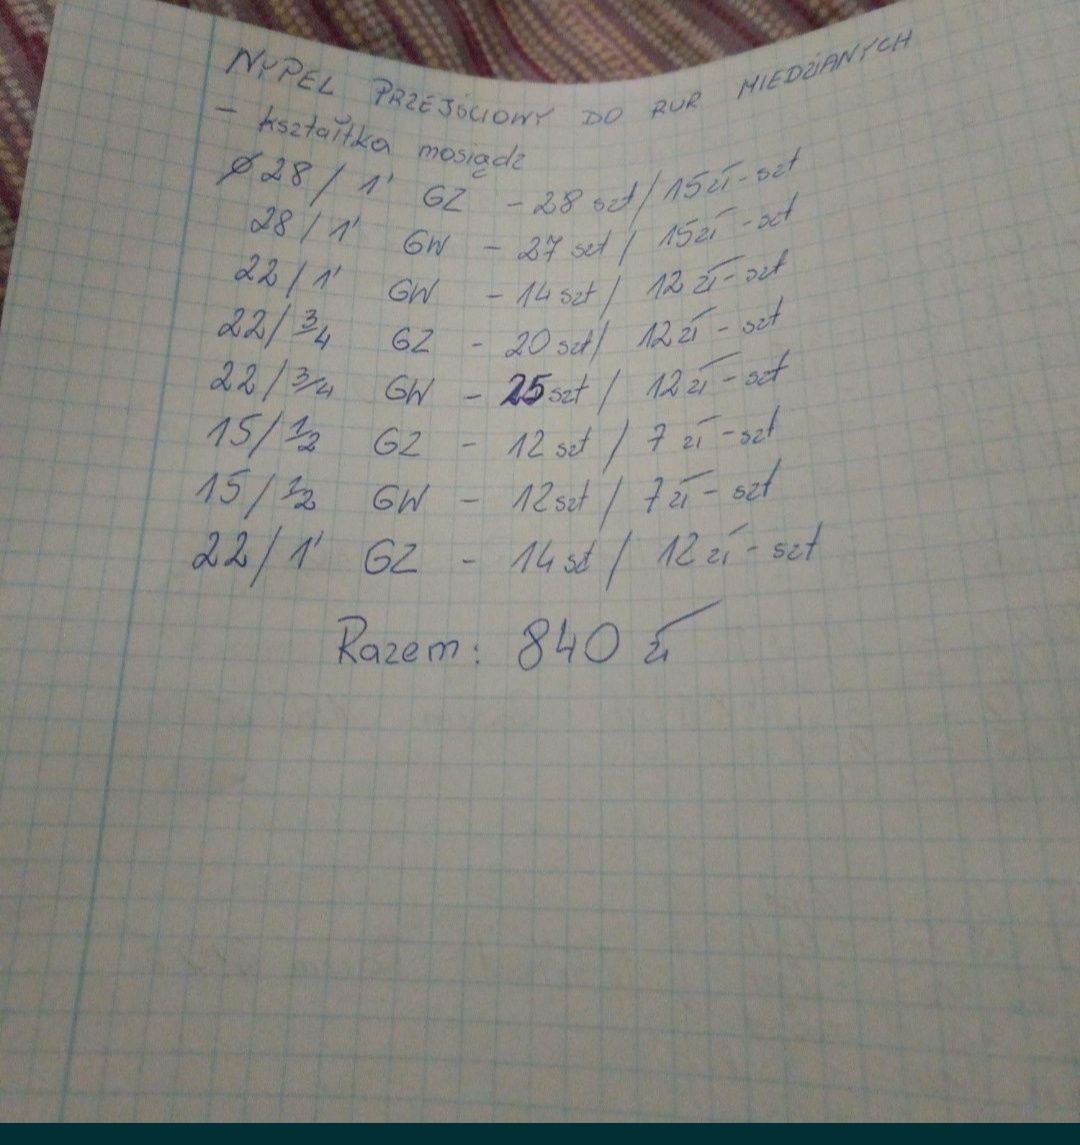 NYPEL PRZEJŚCIOWY DO RUR MIEDZIANYCH
- kształtka mosiądz
Ø28 / 1' GZ - 28 szt / 15 zł - szt
28 / 1' GW - 27 szt / 15 zł - szt
22 / 1' GW - 14 szt / 12 zł - szt
22 / 3/4 GZ - 20 szt / 12 zł - szt
22 / 3/4 GW - 25 szt / 12 zł - szt
15 / 1/2 GZ - 12 szt / 7 zł - szt
15 / 1/2 GW - 12 szt / 7 zł - szt
22 / 1' GZ - 14 st / 12 zł - szt
Razem: 840 zł